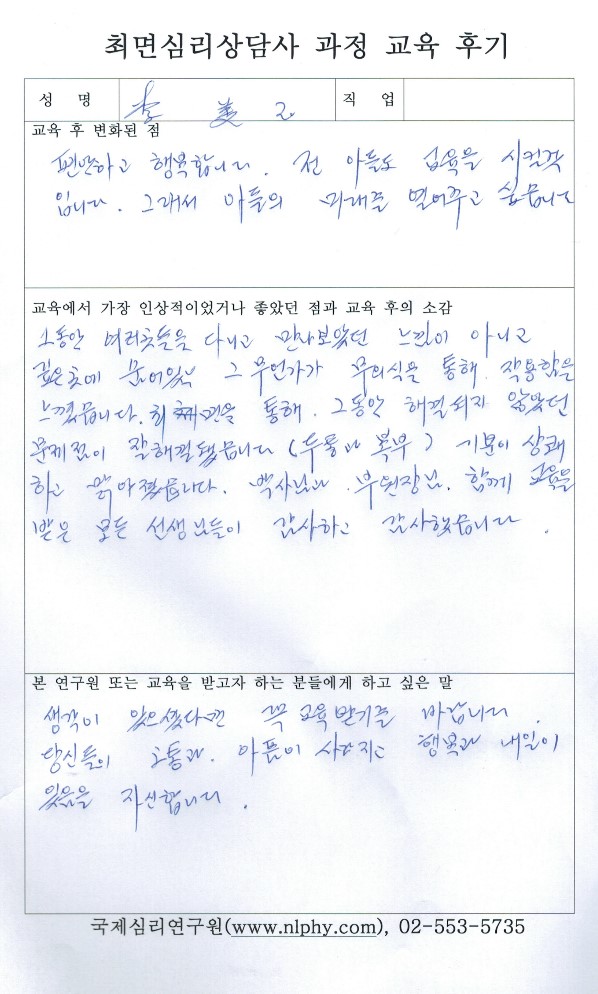 최면심리상담사 과정 교육 후기
성 명 李 美 직 업
교육 후 변화된 점
편안하고 행복합니다. 전 아들도 교육을 시킬것
입니다. 그래서 아들의 미래를 열어주고 싶습니다
교육에서 가장 인상적이었거나 좋았던 점과 교육 후의 소감
그동안 여러곳들을 다니고 만나보았던 느낌이 아니고
깊은곳에 묻어있는 그 무언가가 무의식을 통해 작동함을
느꼈습니다. 최면을 통해. 그동안 해결되지 않았던
문제점이 잘해결됐습니다 (두통과 복부) 기분이 상쾌
하고 맑아졌습니다. 박사님과 부원장님. 함께 교육을
받은 모든 선생님들이 감사하고 감사했습니다.
본 연구원 또는 교육을 받고자 하는 분들에게 하고 싶은 말
생각이 있으셨다면 꼭 교육받기를 바랍니다.
당신들의 고통과 아픔이 사라지고 행복과 내일이
있음을 자신합니다.
국제심리연구원(www.nlphy.com), 02-553-5735